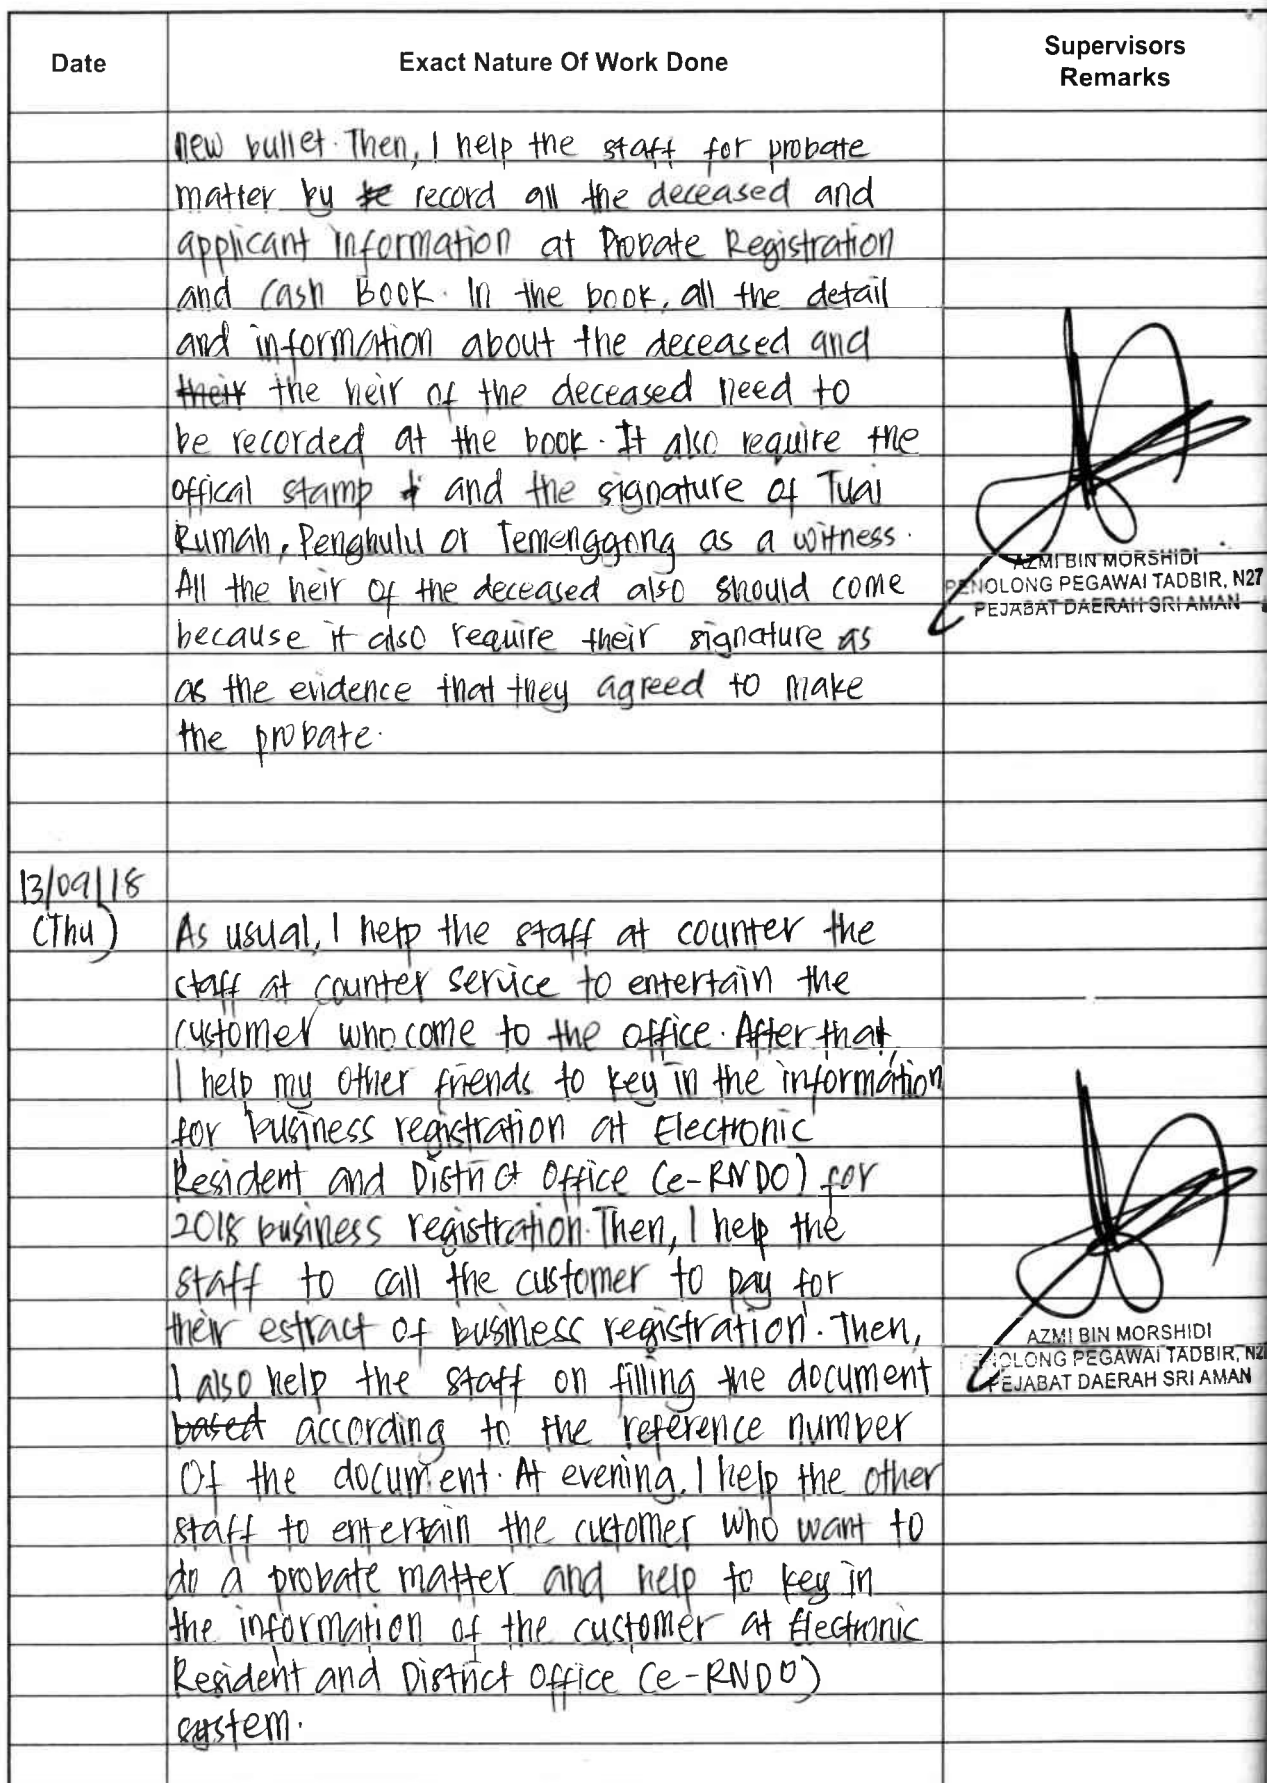 Date
Exact Nature Of Work Done
Supervisors
Remarks
new bullet. Then, I help the staff for probate
matter by record all the deceased and
applicant information at Probate Registration
and Cash Book. In the book, all the detail
and information about the deceased and
their the heir of the deceased need to
be recorded at the book. It also require the
offical stamp and the signature of Tuai
Rumah, Penghulu or Temenggong as a witness.
All the heir of the deceased also should come
because it also require their signature as
as the evidence that they agreed to make
the probate.
AZMI BIN MORSHIDI
PENOLONG PEGAWAI TADBIR, N27
PEJABAT DAERAH SRI AMAN
13/09/18
(Thu)
As usual, I help the staff at counter the
staff at counter service to entertain the
customer who come to the office. After that,
I help my other friends to key in the information
for business registration at Electronic
Resident and District Office (e-RNDO) for
2018 business registration. Then, I help the
staff to call the customer to pay for
their estract of business registration. Then,
I also help the staff on filling the document
based according to the reference number
of the document. At evening, I help the other
staff to entertain the customer who want to
do a probate matter and help to key in
the information of the customer at Electronic
Resident and District Office (e-RNDO)
system.
AZMI BIN MORSHIDI
PENOLONG PEGAWAI TADBIR, N27
PEJABAT DAERAH SRI AMAN